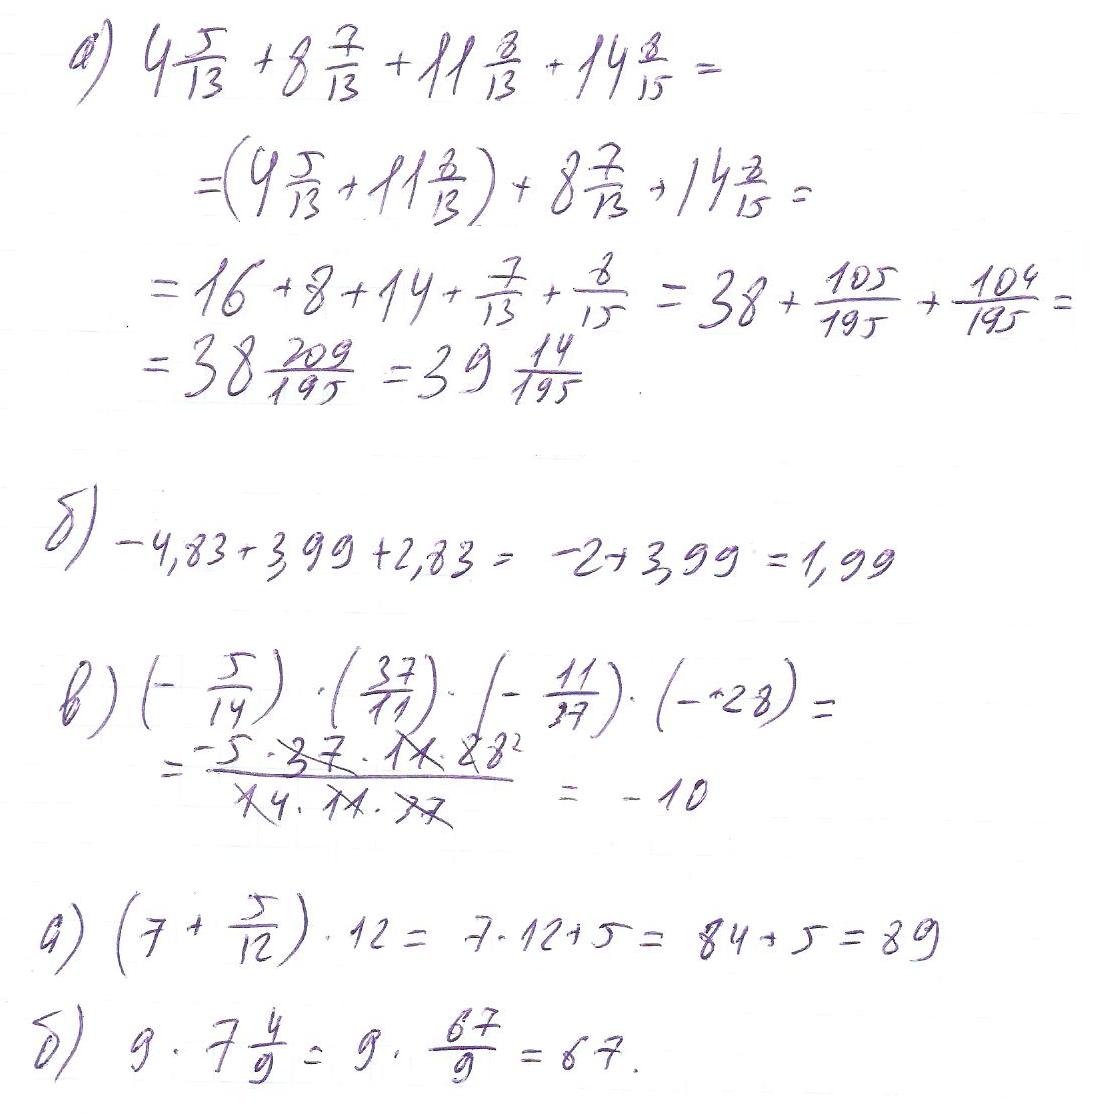 а) 4 5/13 + 8 7/13 + 11 8/13 + 14 8/15 =
= (4 5/13 + 11 8/13) + 8 7/13 + 14 8/15 =
= 16 + 8 + 14 + 7/13 + 8/15 = 38 + 105/195 + 104/195 =
= 38 209/195 = 39 14/195
б) -4,83 + 3,99 + 2,83 = -2 + 3,99 = 1,99
в) (- 5/14) · (37/11) · (- 11/37) · (- 28) =
= -5 · 37 · 11 · 28² / 14 · 11 · 37 = -10
а) (7 + 5/12) · 12 = 7 · 12 + 5 = 84 + 5 = 89
б) 9 · 7 4/9 = 9 · 67/9 = 67.